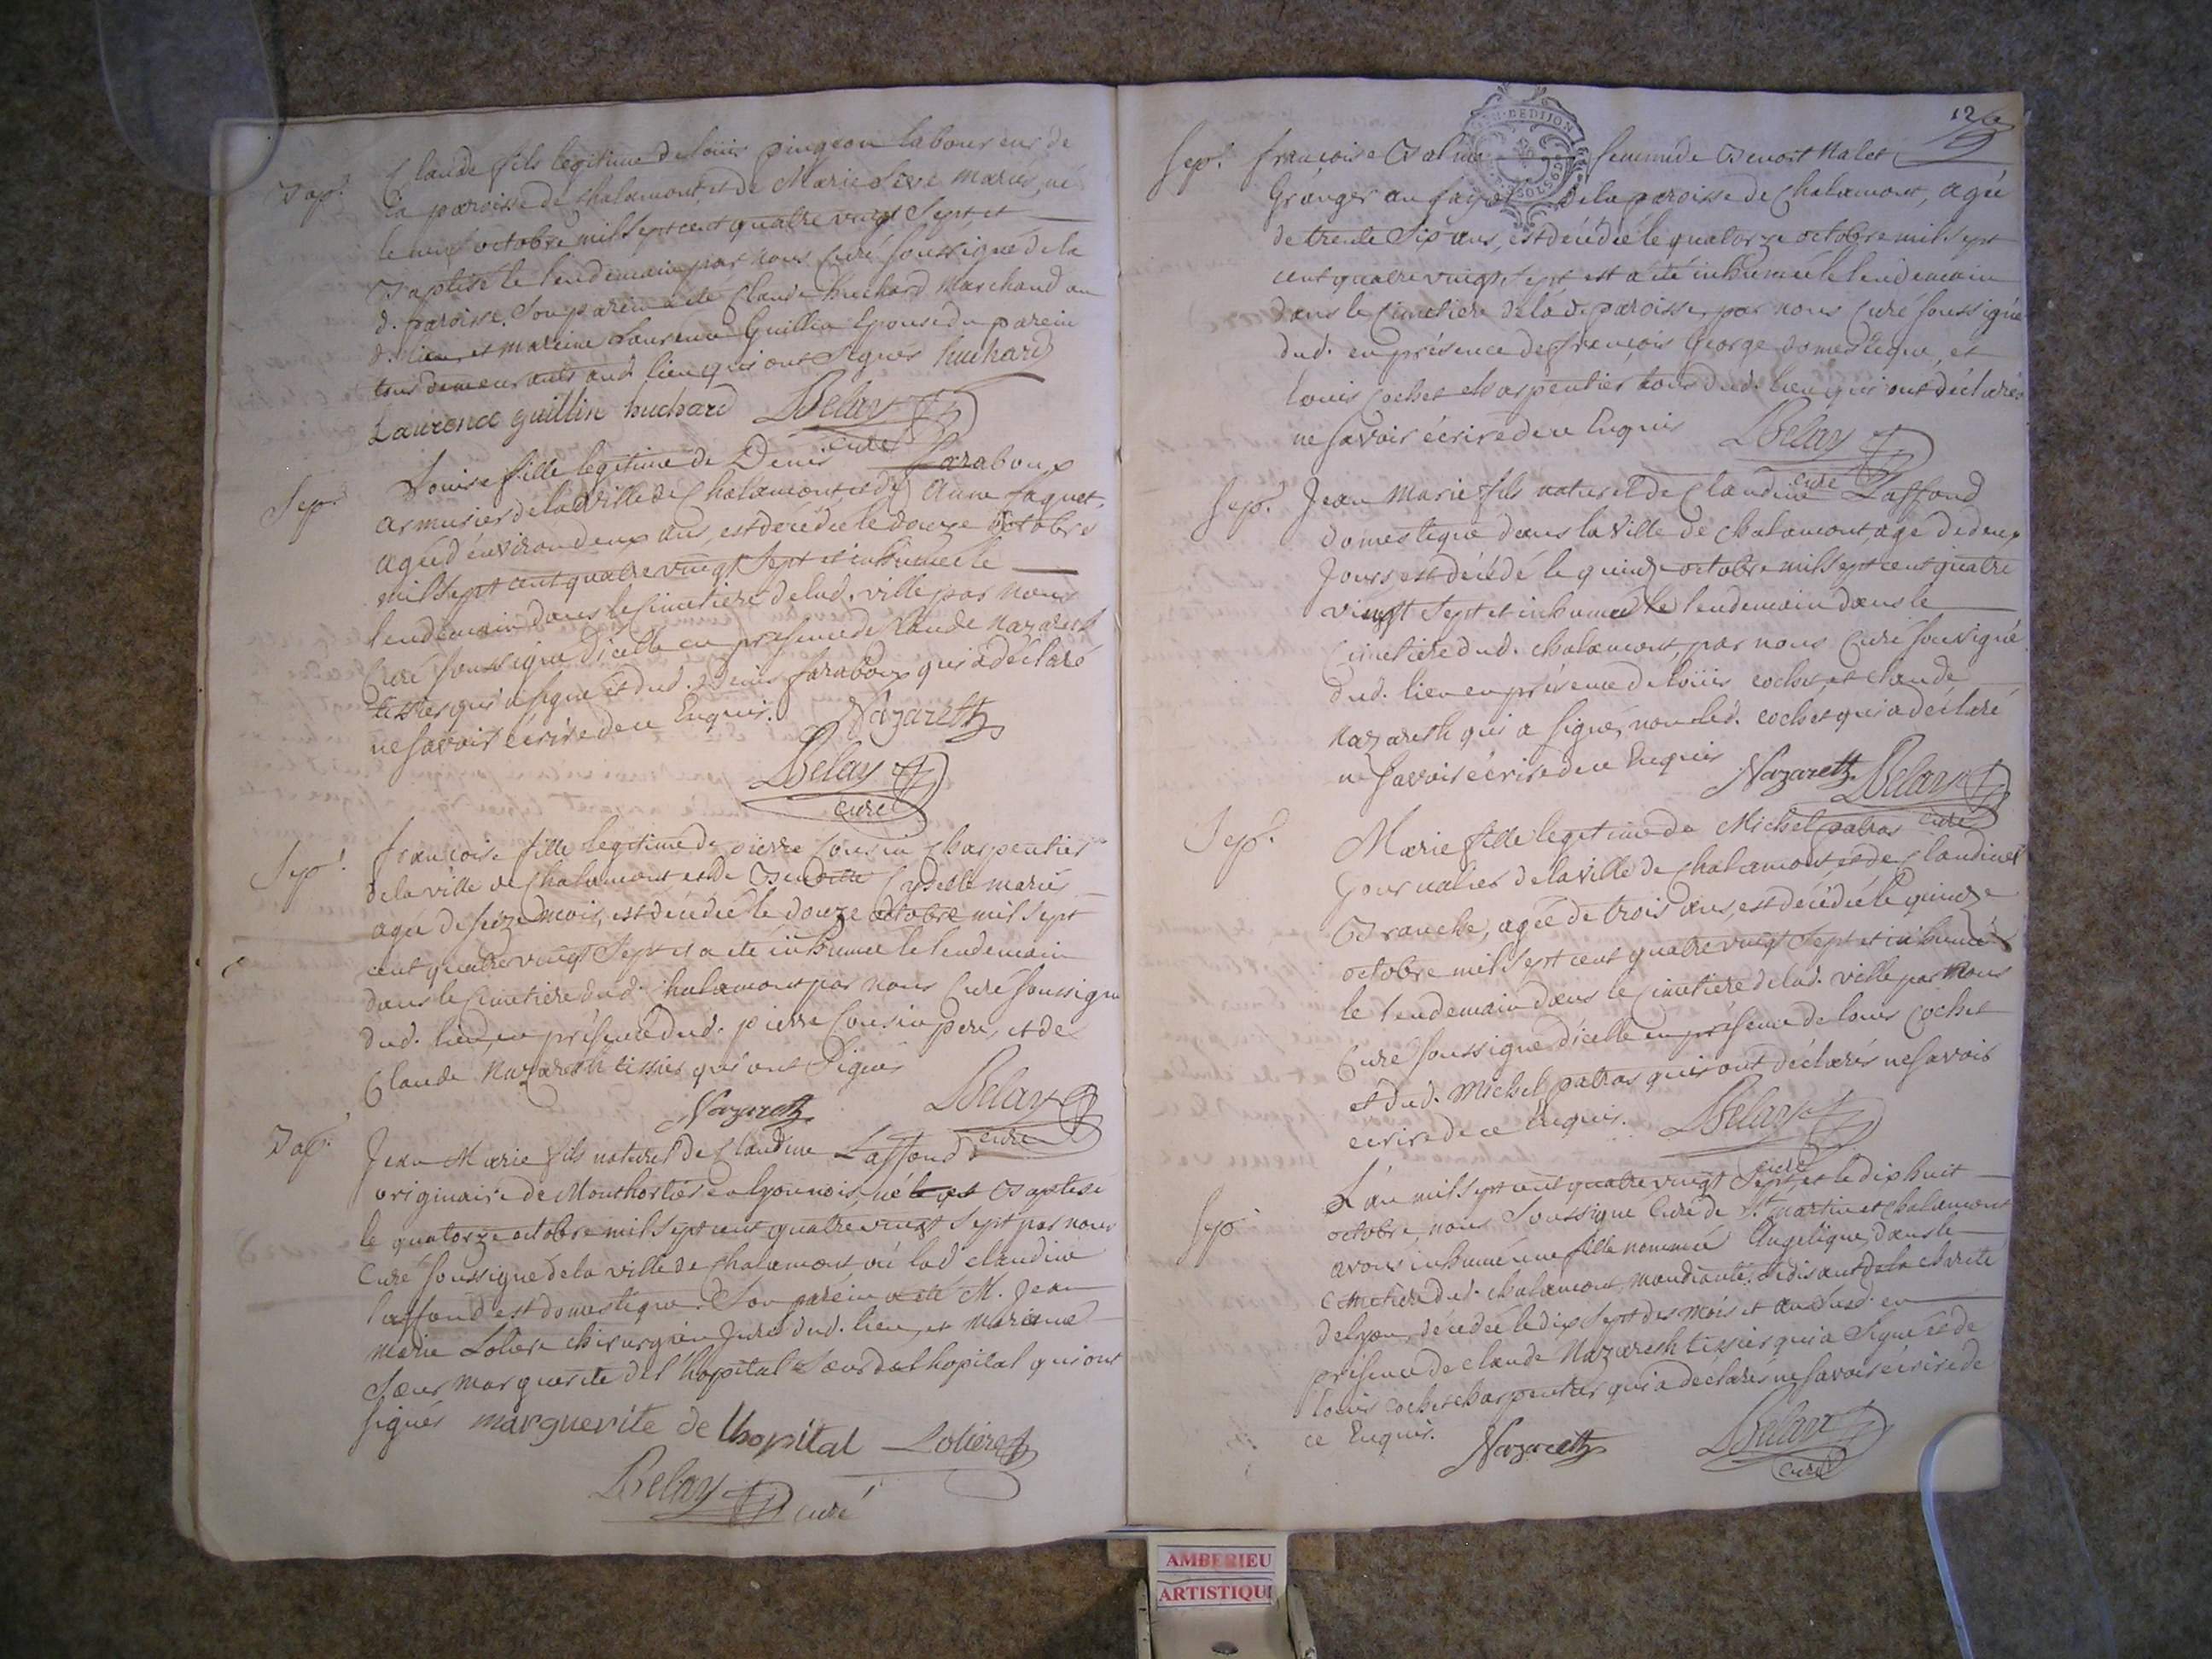 Bap.
Claude fils legitime de loüis pingeon laboureur de
la paroisse de chalamont, et de Marie mariés, né
le neuf octobre mil sept cent quatre vingt sept, et
Baptisé le lendemain par nous Curé soussigné de la
d. paroisse. Son parein a été Claude huchard Marchand au
d. lieu, et mareine Laurence Guillin Epouse du parein
tous demeurants aud. lieu qui ont signés huchard
Laurence guillin huchard Belay
curé
Sep.
Louise fille legitime de Denis faraboux
armurier de la ville de Chalamont, et de Anne faquet,
agée d'environ deux ans, est décédée le douze octobre
mil sept cent quatre vingt sept et inhumée le
lendemain dans le Cimetiere de lad. ville par nous
Curé soussigné d'icelle en presence de Claude Nazareth
tissier qui a signé et dud. Denis faraboux qui a déclaré
ne savoir écrire de ce Enquis. Nazareth
Belay
curé
Sep.
Françoise fille legitime de pierre Cousin Charpentier
de la ville de Chalamont et de mariés
agée de seize mois, est décédée le douze octobre mil sept
cent quatre vingt sept et a été inhumée le lendemain
dans le Cimetiere dud. Chalamont par nous Curé soussigné
dud. lieu, en présence dud. pierre Cousin pere, et de
Claude Nazareth tissier qui ont signés
Nazareth Belay
curé
Bap.
Jean Marie fils naturel de Claudine Laffond
originaire de Monthortier en lyonnois, né et Baptisé
le quatorze octobre mil sept cent quatre vingt sept par nous
Curé soussigné de la ville de Chalamont où lad. claudine
laffond est domestique. Son parein a été M. Jean
Marie Loliere chirurgien Juré dud. lieu, et Mareine
Soeur Marguerite de l'hopital Soeur de l'hopital qui ont
signés marguerite de lhopital Loliere
Belay curé
126
Sep.
françoise femme de Benoit Malet
Granger au fayot de la paroisse de Chalamont, agée
de trente six ans, est décédée le quatorze octobre mil sept
cent quatre vingt sept est a été inhumée le lendemain
dans le Cimetiere de la d. paroisse, par nous Curé soussigné
dud. en présence de françois George domestique, et
Louis Cochet charpentier tous dud. lieu qui ont déclarés
ne savoir écrire de ce Enquis Belay
curé
Sep.
Jean Marie fils naturel de Claudine Laffond
domestique dans la ville de Chalamont, agé de deux
Jours, est décédé le quinze octobre mil sept cent quatre
vingt sept et inhumé le lendemain dans le
Cimetiere dud. chalamont, par nous Curé soussigné
dud. lieu en présence de loüis cochet, et claude
Nazareth qui a signé, non led. cochet qui a déclaré
ne savoir écrire de ce Enquis Nazareth Belay
curé
Sep.
Marie fille legitime de Michel patras
Journalier de la ville de Chalamont, et de Claudine
Branche, agée de trois ans, est décédée le quinze
octobre mil sept cent quatre vingt sept et inhumée
le lendemain dans le Cimetiere de lad. ville par Nous
Curé soussigné d'icelle en présence de louis Cochet
et dud. Michel patras qui ont déclarés ne savoir
écrire de ce Enquis. Belay
curé
Sep.
L'an mil sept cent quatre vingt sept, et le dix huit
octobre, nous Soussigné Curé de St. Martin et Chalamont
avons inhumé une fille nommée Angelique, dans le
Cimetiere dud. chalamont, mandiante, se disant de la charité
de lyon, décédée le dix sept des mois et an susd. en
presence de claude Nazareth tissier qui a signé et de
louis cochet charpentier qui a déclaré ne savoir écrire de
ce Enquis. Nazareth Belay
curé
AMBERIEU
ARTISTIQU